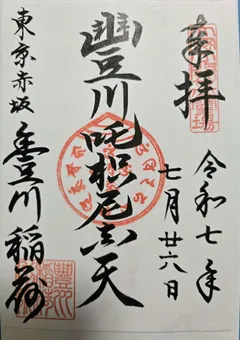 奉拝
令和七年
七月廿六日
豐川吒枳尼真天
東京赤坂
豊川稲荷